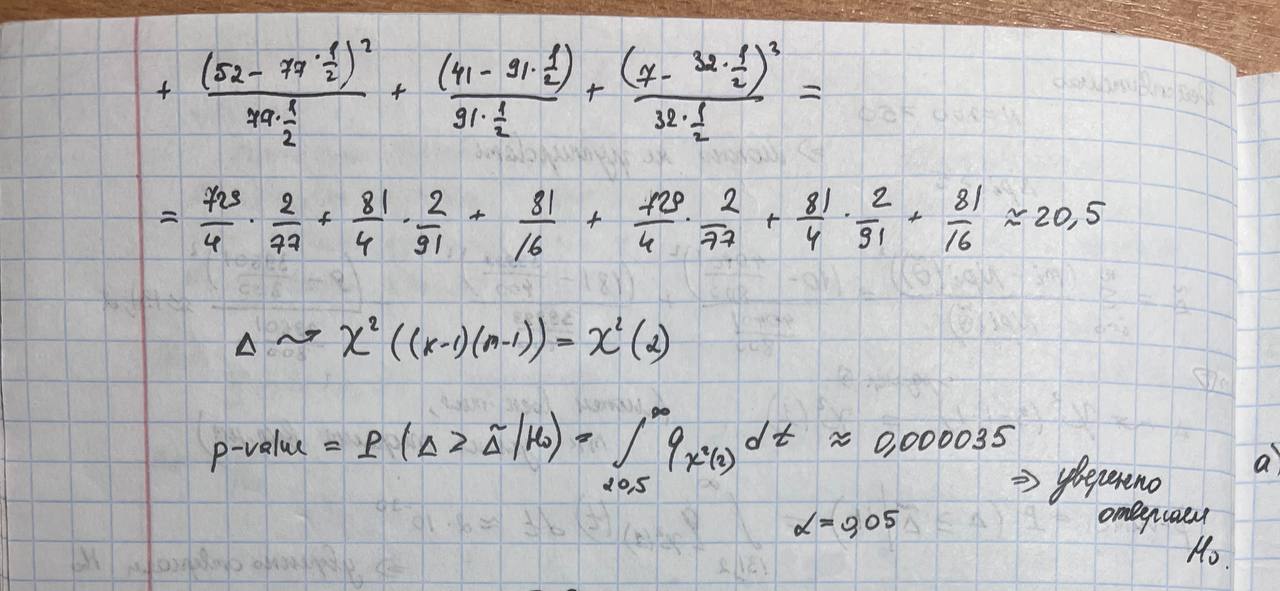 + (52 - 77 · 1/2)² / (79 · 1/2) + (41 - 91 · 1/2) / (91 · 1/2) + (7 - 32 · 1/2)³ / (32 · 1/2) =
= 729/4 · 2/77 + 81/4 · 2/91 + 81/16 + 729/4 · 2/77 + 81/4 · 2/91 + 81/16 ≈ 20,5
Δ ⤳ χ² ((k-1)(m-1)) = χ²(2)
p-value = P (Δ ≥ Δ̃ | H₀) = ∫_{20,5}^{∞} q_{χ²(2)} dt ≈ 0,000035
⇒ уверенно
α = 0,05 отвергаем
H₀.
а)